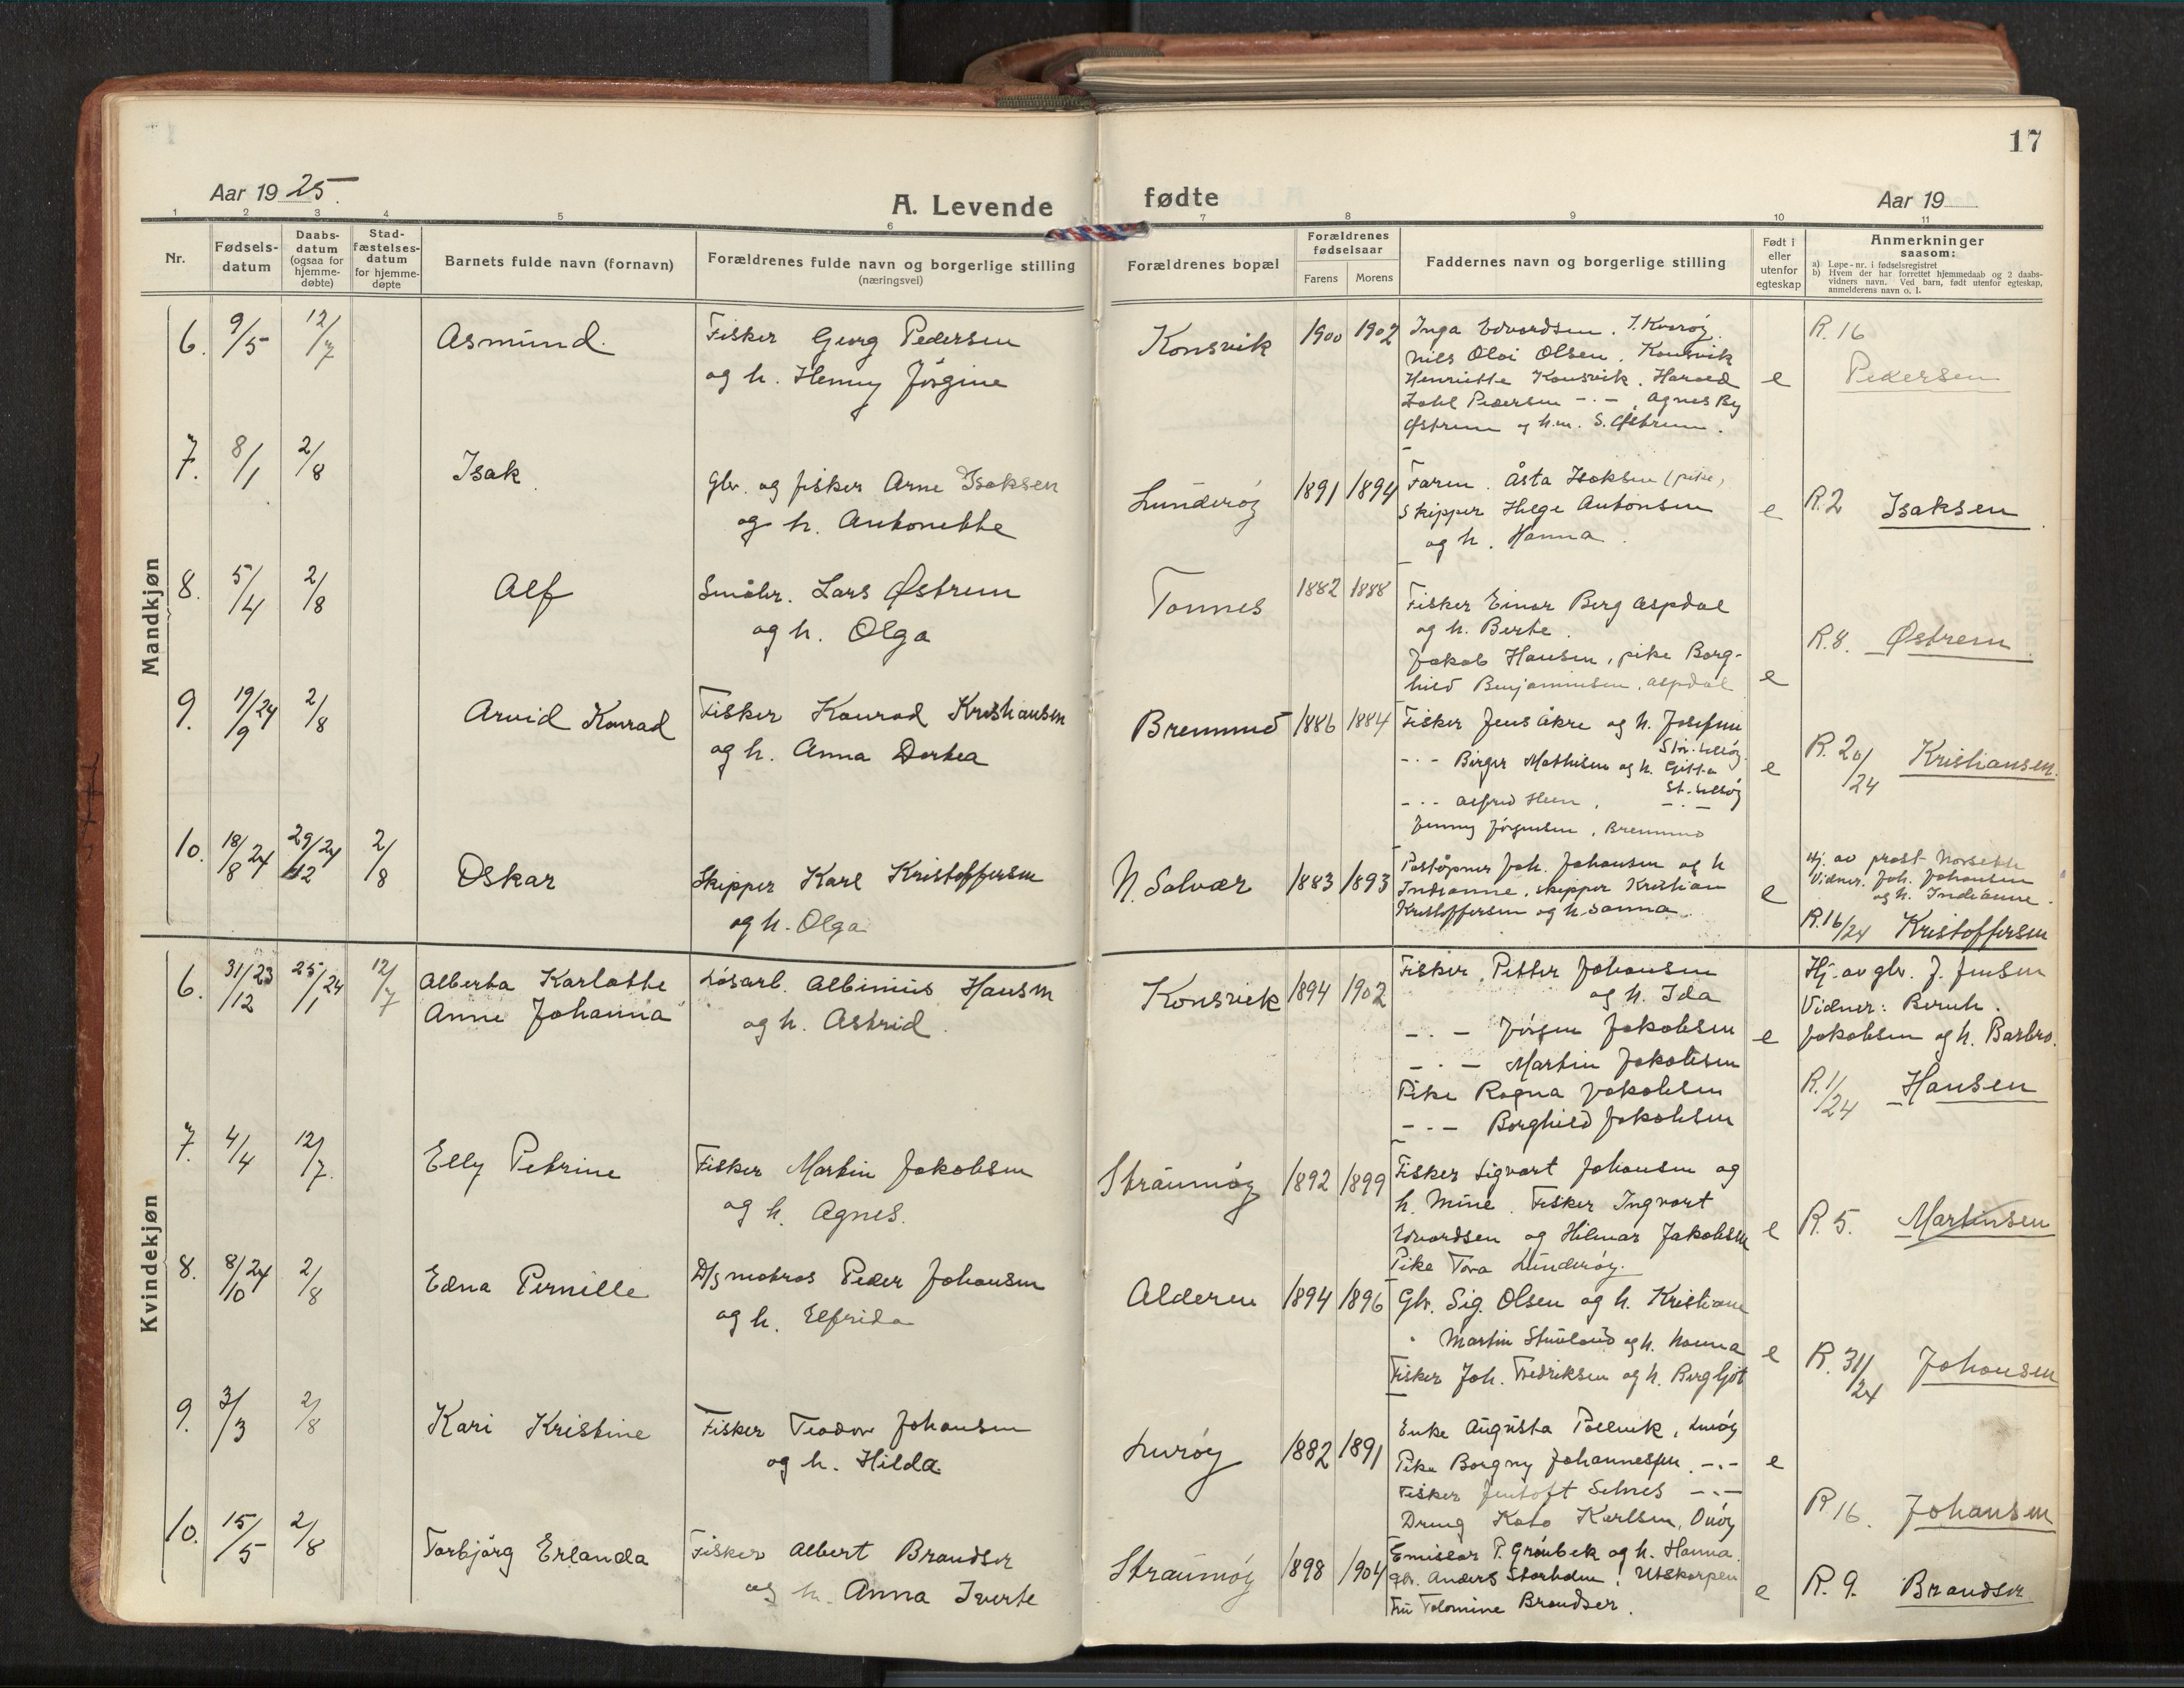 17
Aar 1925.
A. Levende
fødte
Aar 19
1 2 3 4 5 6 7 8 9 10 11
Nr.
Fødsels-
datum
Daabs-
datum
(ogsaa for
hjemme-
døbte)
Stad-
fæstelses-
datum
for hjemme-
døpte
Barnets fulde navn (fornavn)
Forældrenes fulde navn og borgerlige stilling
(næringsvei)
Forældrenes bopæl
Forældrenes
fødselsaar
Farens Morens
Faddernes navn og borgerlige stilling
Født i
eller
utenfor
egteskap
Anmerkninger
saasom:
a) Løpe-nr. i fødselsregistret
b) Hvem der har forrettet hjemmedaab og 2 daabs-
vidners navn. Ved barn, født utenfor egteskap,
anmelderens navn o. l.
Mandkjøn
6. 9/5 12/7 Asmund. Fisker Georg Pedersen
og h. Henny Jørgine
Konsvik 1900 1902 Inga Edvardsen. I. Kvarøy.
Nils Olai Olsen. Konsvik
Henriette Konsvik. Harald
Pedersen -.- . Agnes By
Østrem og h.m. S. Østrem.
e R. 16
Pedersen
7. 8/1 2/8 Isak. Gbr. og fisker Arne Isaksen
og h. Antonette
Lunderøy 1891 1894 Faren. Åsta Isaksen (pike)
Skipper Helge Antonsen
og h. Hanna.
e R. 2 Isaksen
8. 5/4 2/8 Alf Småbr. Lars Østrem
og h. Olga
Tonnes 1882 1888 Fisker Einar Berg Aspdal
og h. Berte.
Jakob Hansen, pike Borg-
hild Benjaminsen. Aspdal
e R. 8. Østrem
9. 19/9 24 2/8 Arvid Konrad Fisker Konrad Kristiansen
og h. Anna Dortea
Bremmed 1886 1884 Fisker Jens Åkre og h. Josefine
Str. Selsøy
-.- Birger Mathisen og h. Gitta
St. Selsøy
-.- Alfred Heen, -.-
Jenny Jørgensen, Bremmed
e R. 20/24 Kristiansen.
10. 18/8 24 29/12 24 2/8 Oskar Skipper Karl Kristoffersen
og h. Olga
N. Solvær 1883 1893 Poståpner Joh. Johansen og h
Indianne, skipper Kristian
Kristoffersen og h. Sanna.
e Hj. av prost Norsette
Vidner. Joh. Johansen
og h. Indianne.
R. 16/24 Kristoffersen
Kvindekjøn
6. 31/12 23 25/1 24 12/7 Alberta Karlotte
Anne Johanna
Løsarb. Albinius Hansen
og h. Astrid.
Konsvik 1894 1902 Fisker Petter Johansen
og h. Ida
-.- Jørgen Jakobsen
-.- Martin Jakobsen
Pike Ragna Jakobsen
-.- Borghild Jakobsen
e Hj. av gbr. J. Jensen
Vidner: Bernh.
Jakobsen og h. Barbro.
R. 1/24 Hansen
7. 4/4 12/7. Elly Petrine Fisker Martin Jakobsen
og h. Agnes.
Straumøy 1892 1899 Fisker Sigvart Johansen og
h. Mine. Fisker Ingvart
Edvardsen og Hilmar Jakobsen
Pike Tora Lunderøy.
e R. 5. Martinsen
8. 8/10 24 2/8 Edna Pernille D/s matros Peder Johansen
og h. Elfrida
Alderen 1894 1896 Gbr. Sig. Olsen og h. Kristiane
" Martin Stuvland og h. Nanna
Fisker Joh. Fredriksen og h. Bergljot
e R. 31/24 Johansen
9. 3/3 2/8 Kari Kristine Fisker Teodor Johansen
og h. Hilda.
Lurøy 1882 1891 Enke Augusta Pollvik, Lurøy
Pike Borgny Johannessen -.-
Fisker Jentoft Selnes -.-
Dreng Kato Karlsen, Onøy
e R. 16. Johansen
10. 15/5 2/8 Torbjørg Erlanda Fisker Albert Brandser
og h. Anna Iverte
Straumøy 1898 1904 Emissær P. Grønbek og h. Hanna.
Gbr. Anders Storholm, Utskarpen
Fru Tolomine Brandser.
e R. 9. Brandser